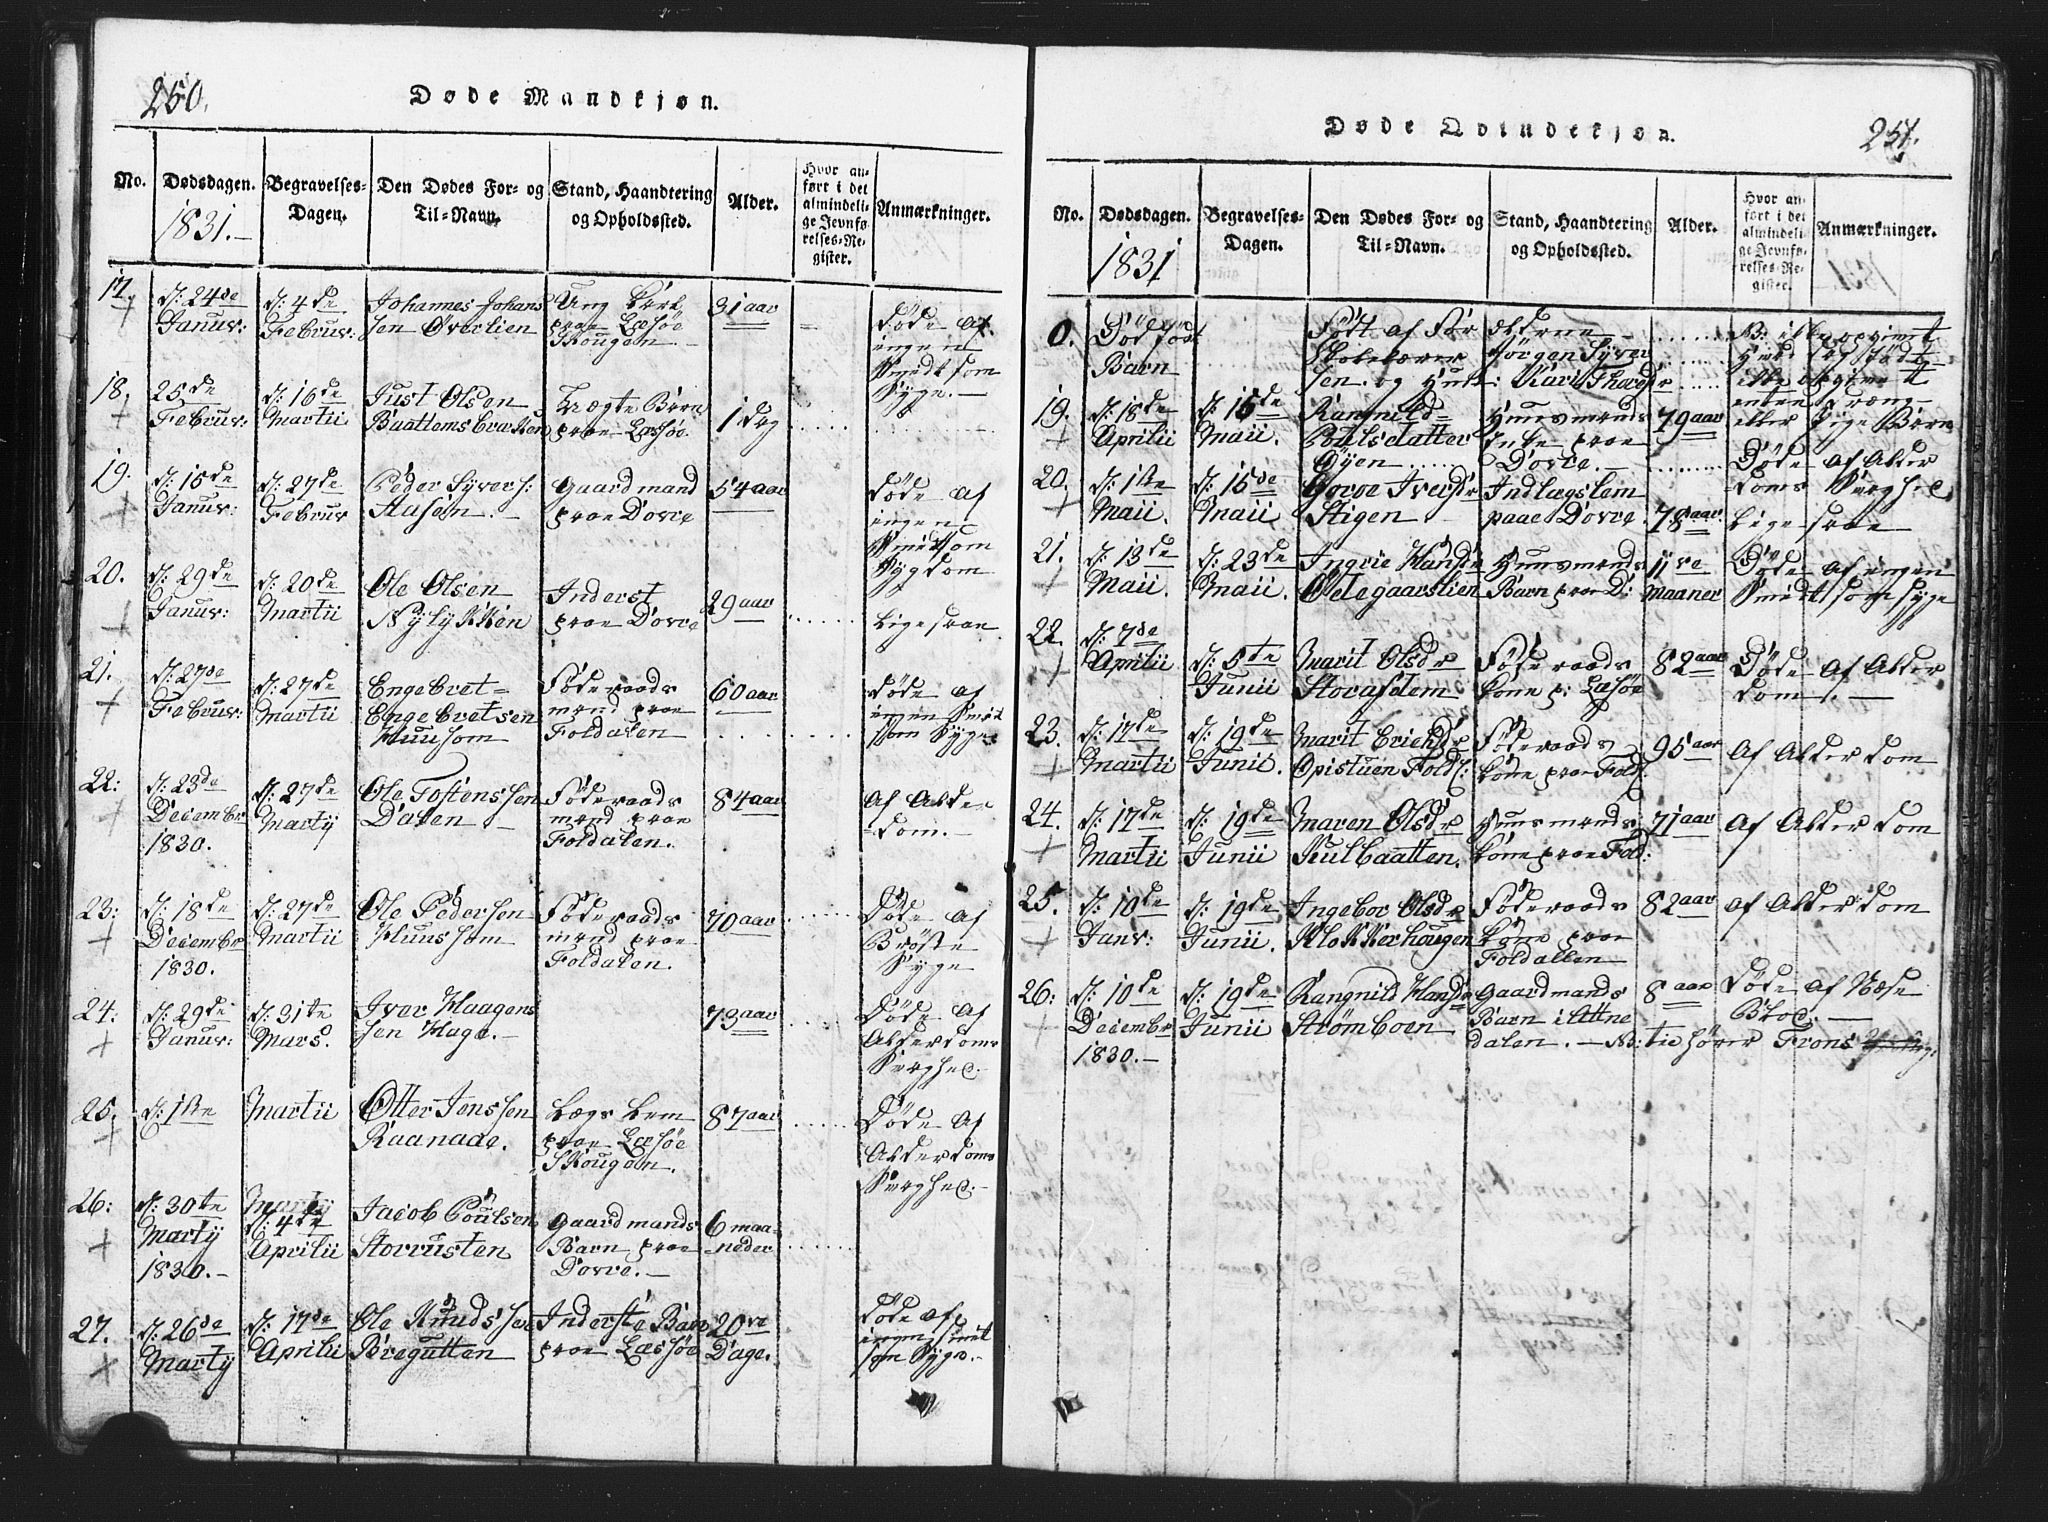 250.
Døde Mandkjøn.
No.
Dødsdagen.
1831.-
Begravelses-
Dagen.
Den Dødes For- og
Til-Navn.
Stand, Haandtering
og Opholdssted.
Alder.
Hvor an-
ført i det
almindeli-
ge Jevnfø-
relses-Re-
gister.
Anmærkninger.
17.
d: 24de
Januv:
d: 4de
Februv:
Johannes Johans
sen Øverlien
Ung Karl
paae Læsøe
Skougen.
31 aar
Døde af
ingen
Smitsom
Syge.-
18.
25de
Februv:
d: 16de
Martii
Just Olsen
Baattemsbrækken
Uægte Barn
paae Læsøe.
1 Dag
19.
d: 15de
Januv:
d: 27de
Februv
Peder Syvers:
Aasen.
Gaardmand
paae Dovre
54 aar
Døde af
ingen
Smitsom
Sygdom
20.
d: 29de
Januv:
d: 20de
Martii
Ole Olsen
Nylykken
Inderst
paae Dovre
29 aar
Ligesaae
21.
d: 27de
Februv:
d: 27de
Martii
Engebret=
Engebretsen
Huusom
Føderaads
mand paae
Foldalen
60 aar
Døde af
ingen Smit
som Syge
22:
d: 23de
Decembr
1830.
d: 27de
Marty
Ole Tostenssen
Dalen
Føderaads
mand paae
Foldalen.
84 aar
Af Alder
dom.-
23:
d: 18de
Decembr
1830.
d: 27de
Martii
Ole Pedersen
Huussom
Føderaads
mand paae
Foldalen.
70 aar
Døde af
Brøste
Syge
24:
d: 29de
Januv:
d: 31te
Mars.
Iver Haagens
sen Hage.-
73 aar
Døde af
Alderdoms
Svaghed.
25.
d: 1ste
Martii
Otter Jenssen
Raanaae.
Lægs Lem
paae Læsøe
Skougen.
87 aar
Døde af
Alderdoms
Svaghed.-
26:
d: 30te
Marty
1830.-
Marty
d: 4de
Aprilii
Jacob Poulsen
Storrusten
Gaardmands
Barn paae
Dovre.-
6 maa-
neder
27.
d: 26de
Marty
d: 17de
Aprilii
Ole Knudssen
Bregutten
Inderste Barn
paae Læssøe
20ve
Dage.
Døde af
ingen smit
som Syge.-
Døde Qvindekjøn.
251.
No.
Dødsdagen.
1831
Begravelses-
Dagen.
Den Dødes For- og
Til-Navn.
Stand, Haandtering
og Opholdssted.
Alder.
Hvor an-
ført i det
almindeli-
ge Jevnfø-
relses-Re-
gister.
Anmærkninger.
0.
Død født
Barn
Født af For ældrene
Skolelærer Jørgen Syver
sen og Hust: Kari Thordsr
NB: ikke opgivet
ikke opgivet
enten Dreng-
eller Pige Barn
19.
d: 18de
Aprilii
d: 15de
Maii.
Rangnild=
Poulsdatter
Øyen
Huusmands
Enke paae
Dovre.-
79 aar
Døde af Alder
doms Svaghed
20.
d: 1ste
Maii.
d: 15de
Maii
Goroe Iversdr
Stigen
Indlægslem
paae Dovre.
78 aar
Ligesaae
21.
d: 13de
Maii.
d: 23de
Maii.
Ingrie Hansdr
Ødegaardslien
Huusmands
Barn paae D:
11ve
maaner
Døde af ingen
Smitsom Syge
22
d: 7de
Aprilii
d: 5te
Junii
Marit Olsdr
Storasdem
Føderaads
kone p: Læsøe
82 aar
Døde af Alder
dom.-
23.
d: 17de
Martii
d: 19de
Junii.
Marit Erichsdr
Opistuen Fold:
Føderaads
kone paae Fold:
95 aar
Af Alderdom
24.
d: 17de
Martii
d: 19de
Junii
Maren Olsdr
Kulbaatten.
Huusmands
kone paae Fold:
71 aar
Af Alderdom
25.
d: 10de
Janv:
d: 19de
Junii.
Ingebor Olsdr
Klokkerhougen
Føderaads
kone paae
Foldallen
82 aar
af Alderdom
26:
d: 10de
Decembr
1830.-
d: 19de
Junii
Rangnild Hansdr
Strømboen
Gaardmands
Barn i Attne
dalen.- NB: tilhører Frons
8 aar
Døde af Næse
Blod.-